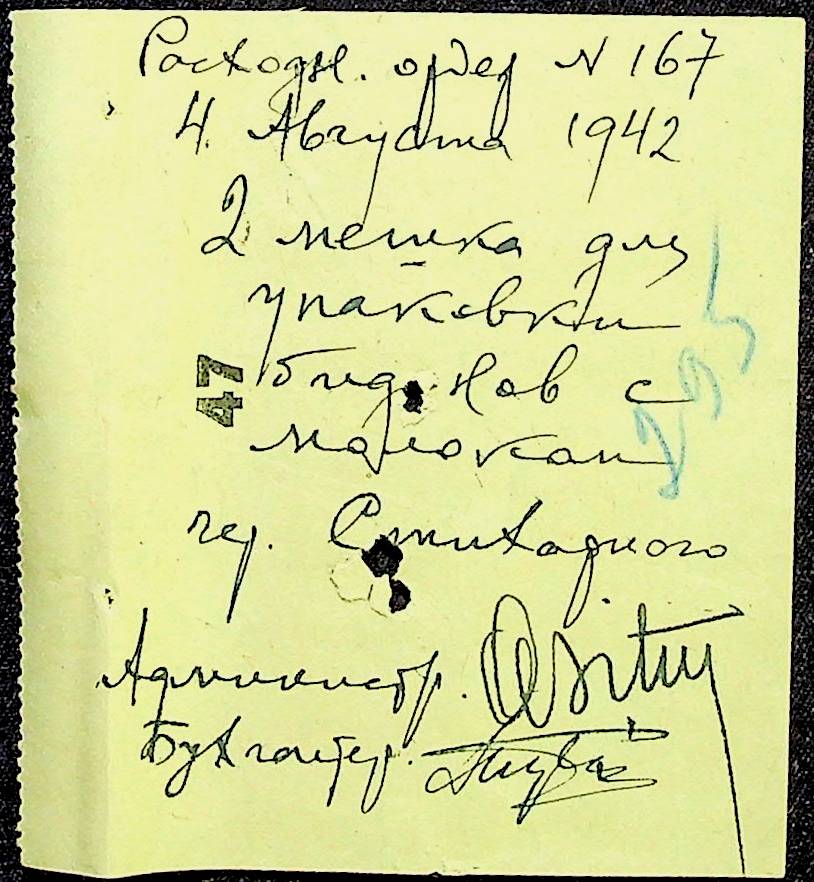 Расходн. ордер N 167
4 Августа 1942
2 мешка для
упаковки
47
бидонов с
молоком
чер. Стихарного
Администр.
Бухгалтер.